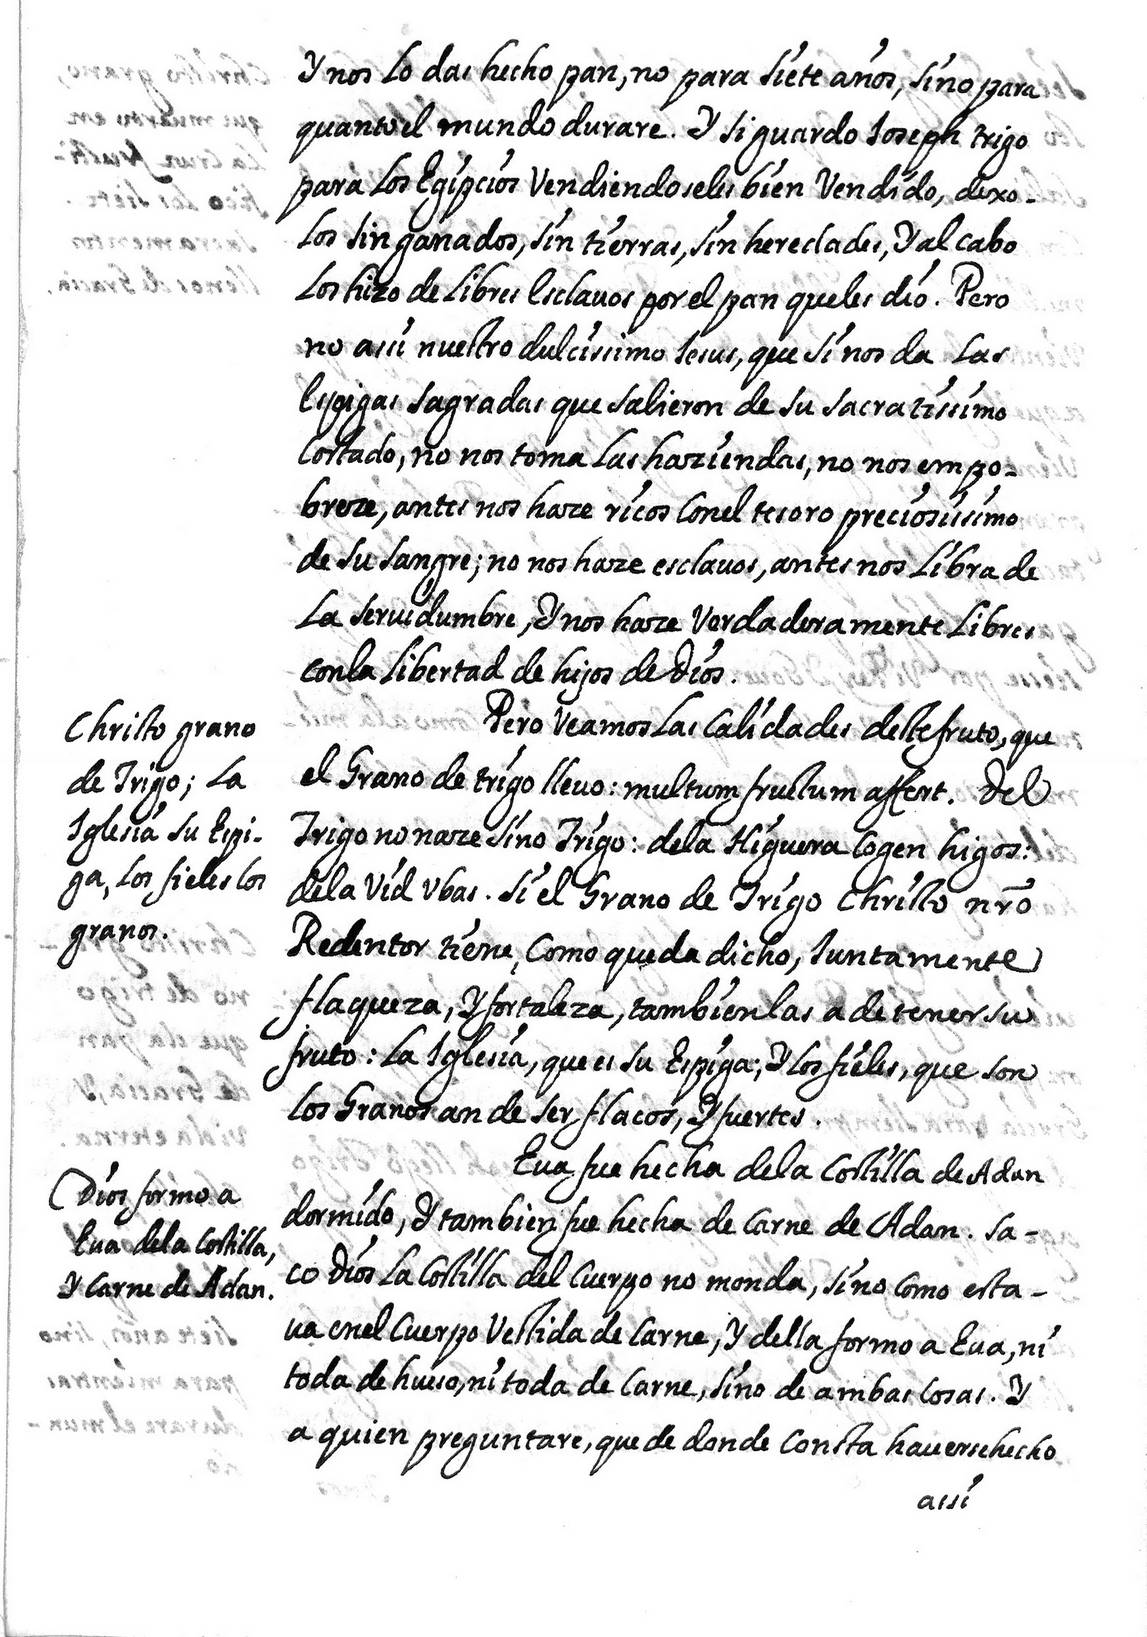 Y nos lo das hecho pan, no para siete años, sino para
quanto el mundo durare. Y si guardo Joseph trigo
para los Egipcios Vendiendoseles bien Vendido, dexo-
los sin ganados, sin tierras, sin heredades, Y al cabo
los hizo de libres esclavos por el pan que les dio. Pero
no assi nuestro dulcissimo Jesus, que si nos da las
espigas sagradas que salieron de su sacratissimo
Costado, no nos toma las haziendas, no nos empo-
breze, antes nos haze ricos conel tesoro preciosissimo
de su sangre; no nos haze esclauos, antes nos libra de
la seruidumbre, Y nos haze Verdaderamente libres
conla libertad de hijos de Dios.
Christo grano
de Trigo; la
Iglesia su Espi-
ga, los fieles los
granos.
Pero Veamos las calidades deste fruto, que
el Grano de trigo lleuo: multum fructum affert. Del
Trigo no naze sino Trigo: dela Higuera cogen higos:
dela Vid Vbas. Si el Grano de Trigo Christo nrõ
Redentor tiene, como queda dicho, Juntamente
flaqueza, Y fortaleza, tambien las a de tener su
fruto: la Iglesia, que es su Espiga; Y los fieles, que son
los Granos an de ser flacos, Y fuertes.
Dios formo a
Eua dela Costilla,
Y Carne de Adan.
Eua fue hecha dela Costilla de Adan
dormido, Y tambien fue hecha de Carne de Adan. Sa-
co Dios la Costilla del Cuerpo no monda, sino como esta-
ua enel Cuerpo Vestida de Carne, Y della formo a Eua, ni
toda de hueso, ni toda de Carne, sino de ambas cosas. Y
a quien preguntare, que de donde Consta hauerse hecho
assi